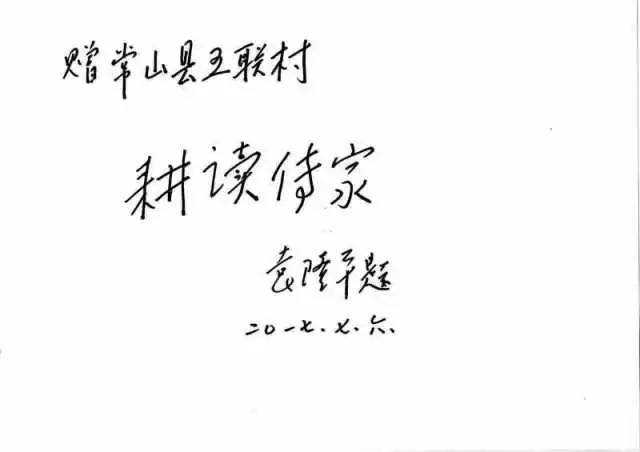 赠常山县五联村
耕读传家
袁隆平题
二0一七.七.六.